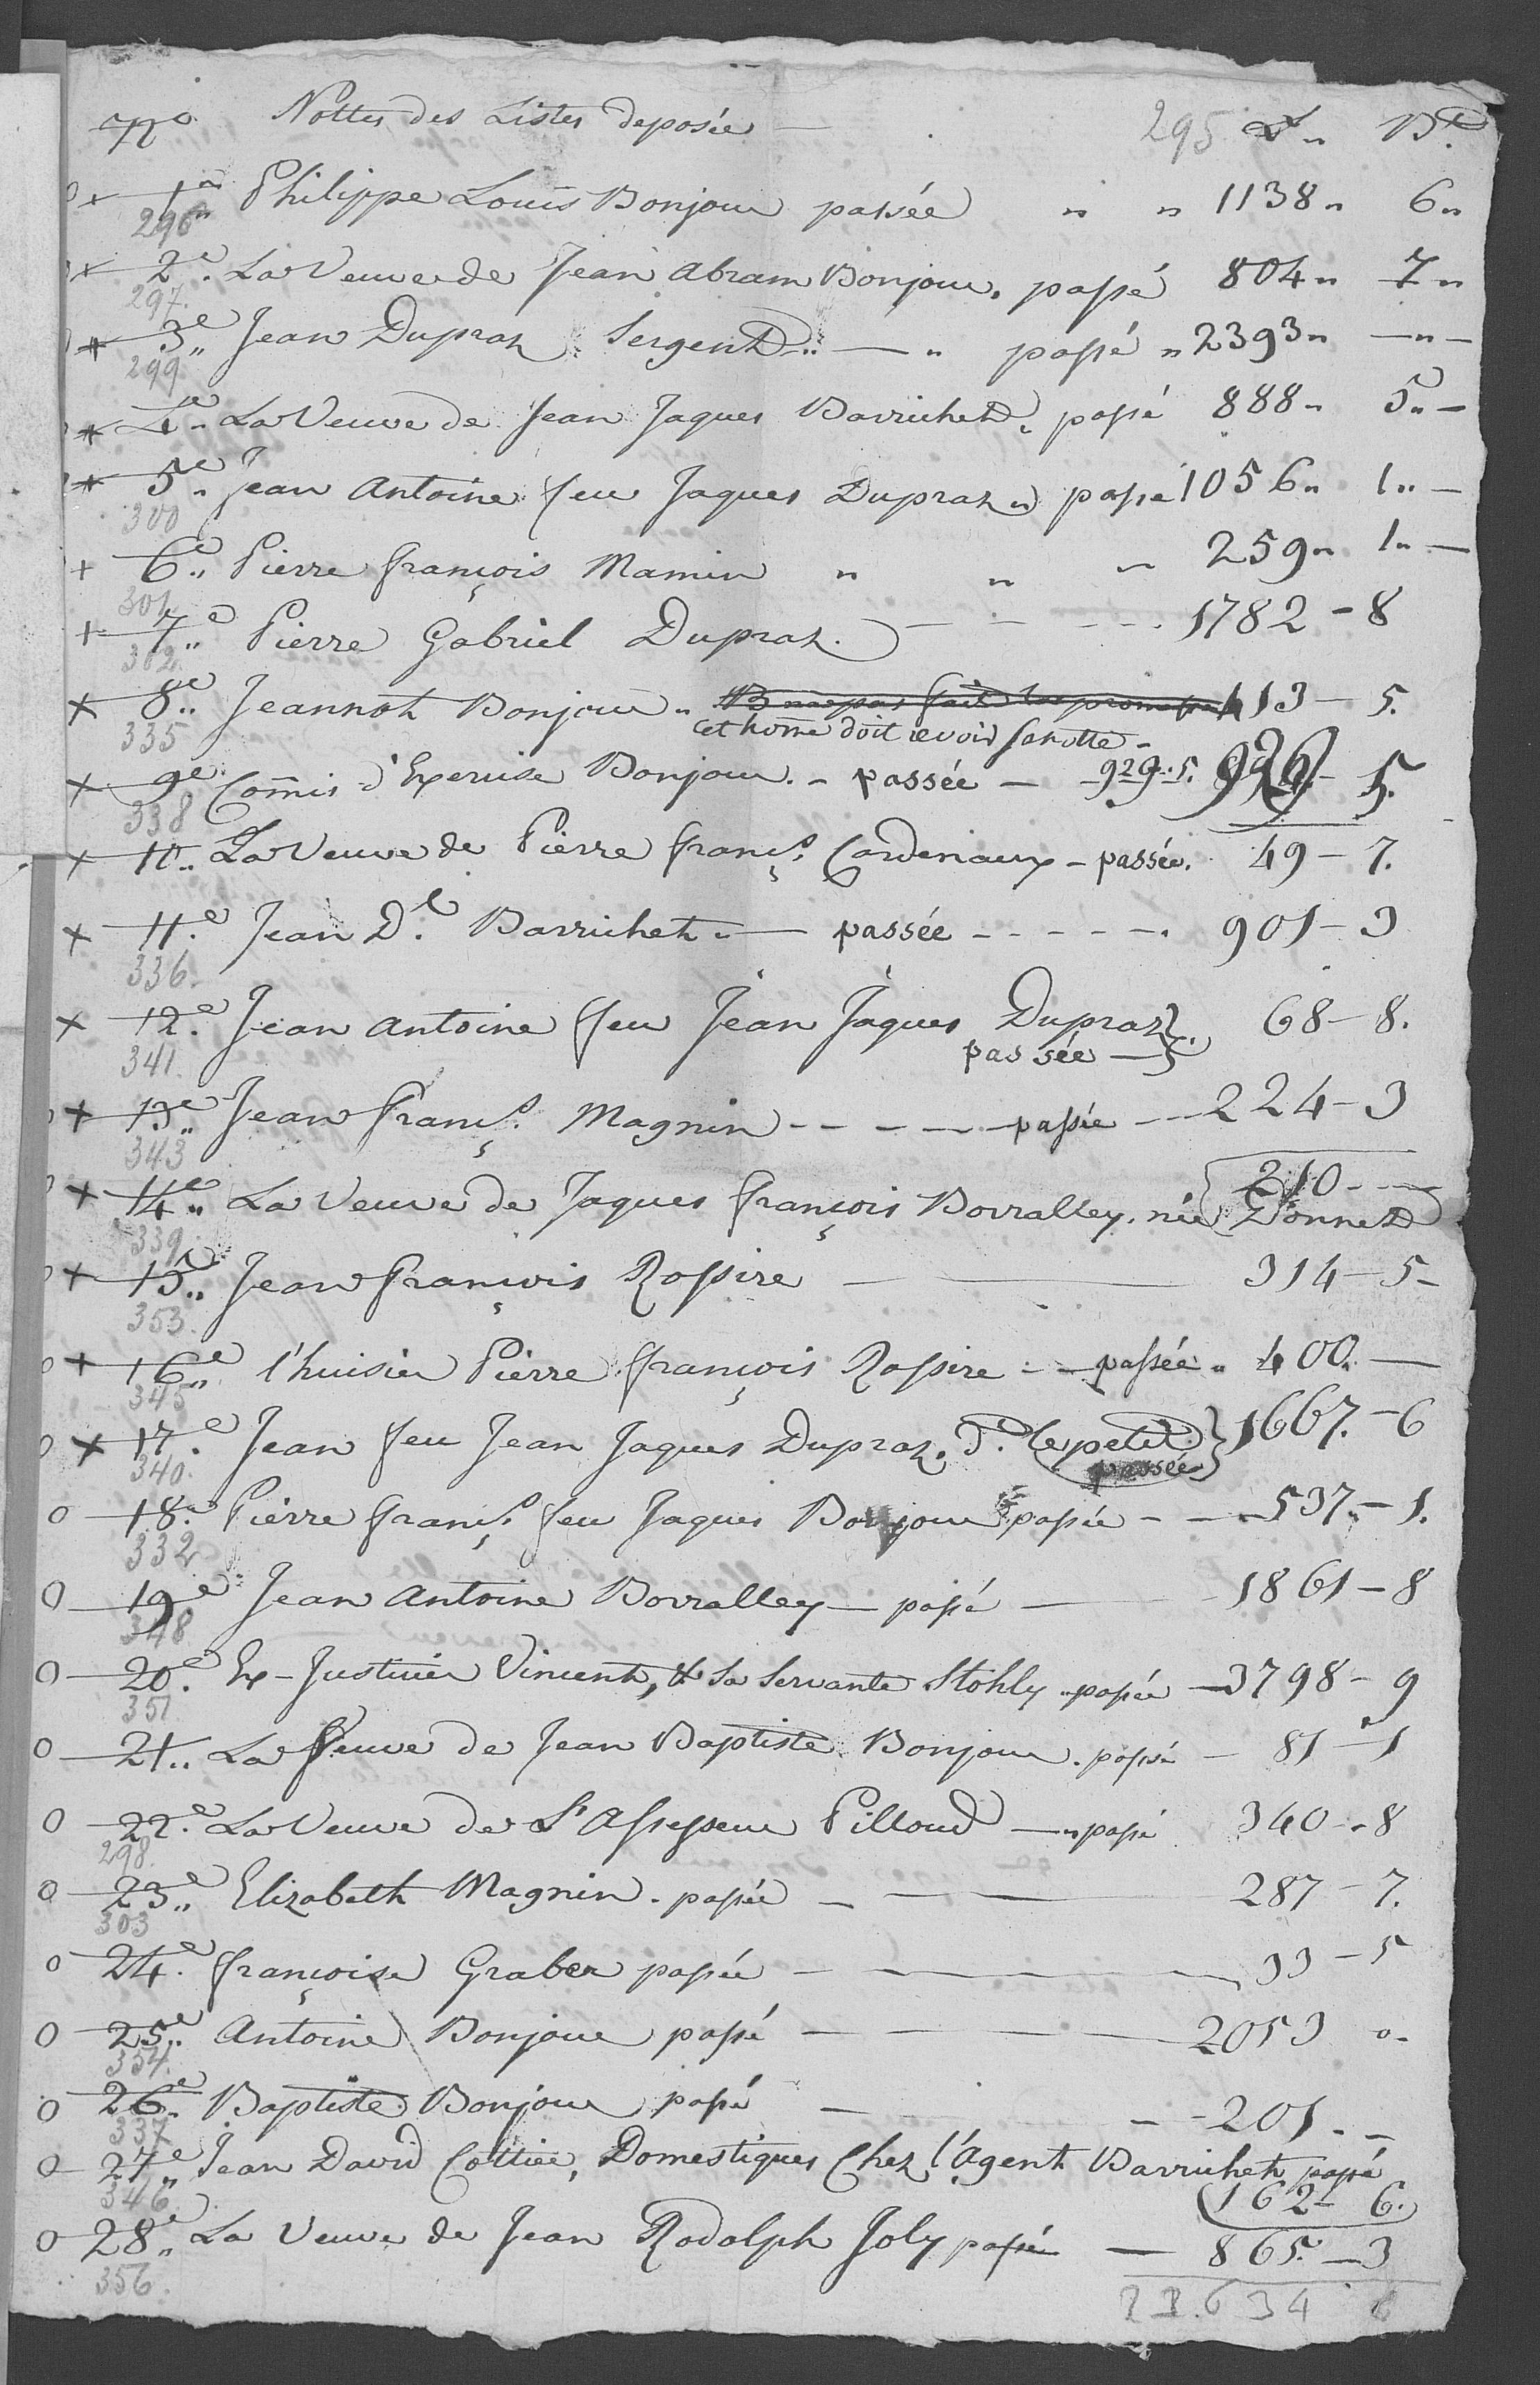 Nº Nottes des Listes deposée — 295 L„ Bz
+ 1er„ Philippe Louis Bonjour passée „ „ 1138„ 6„
296„
+ 2e. La Veuve de Jean Abram Bonjour, passé 804„ 7„
297.
* 3e„ Jean Dupraz Sergent„ — „ passé „ 2393„ —„—
299.
* 4e„ La Veuve de Jean Jaques Barrichet, passé 888„ 5„—
* 5e„ Jean Antoine feu Jaques Dupraz„ passé 1056„ 1„—
300
+ 6e„ Pierre françois Mamin „ „ „ 259„ 1„—
301.
+ 7e„ Pierre Gabriel Dupraz. — — — 1782 - 8
302.
+ 8e„ Jeannot Bonjour„ 413 — 5.
335 cet home doit revoir sa notte -
+ 9e. Comis d'Exercise Bonjour. - passée — 929.. 5. 929 - 5.
338
+ 10„ La Veuve de Pierre franç.s Cardinaux - passée. 49 — 7.
+ 11.e Jean D.l Barrichet„ — passée - - - - - 901 — 3
336.
+ 12.e Jean Antoine feu Jean Jaques Dupraz} 68 — 8.
341. passée —}
+ 13e„ Jean franç.s Magnin - - - - - passée - - 224 - 3
343
+ 14e„ La Veuve de Jaques françois Borralley. née {210 - - -
339. Donnet
+ 15„ Jean françois Rossire — — 314 - 5 -
353.
+ 16e„ l'huisier Pierre françois Rossire - - passée „ 400. —
345
+ 17.e Jean feu Jean Jaques Dupraz, d.t le petit} 1667. - 6
340. passée}
0 18.e Pierre franç.s feu Jaques Bonjour passée - - - 537. - 1.
332
0 19e Jean Antoine Borralley — passé — 1861 - 8
348
0 20.e Ex-Justicier Vincent, & sa Servante Stöhly - passée — 3798 - 9
351.
0 21„ La Veuve de Jean Baptiste Bonjour. passé — 81 - 1
0 22.e La Veuve de L'Assesseur Pilloud — „ passé 340 - 8
298.
0 23e„ Elizabeth Magnin. passée — — — 287 - 7.
303
0 24.e françoise Graber passée — — — 33 - 5
0 25e„ Antoine Bonjour passé — — — 2053 0-
354.
0 26e„ Baptiste Bonjour passé — — 201. -
337
0 27e„ Jean David Cottier, Domestiques Chez l'agent Barrichet passé
346. (162 - 6.)
0 28e„ La Veuve de Jean Rodolph Joly passé — 865. — 3
356. 23.634 6